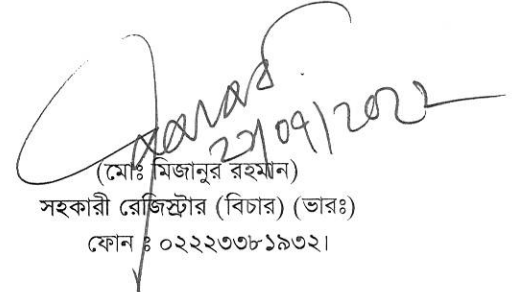 ২১/০৭/২০২২
(মোঃ মিজানুর রহমান)
সহকারী রেজিস্ট্রার (বিচার) (ভারঃ)
ফোন ঃ ০২২২৩৩৮১৯৩২।